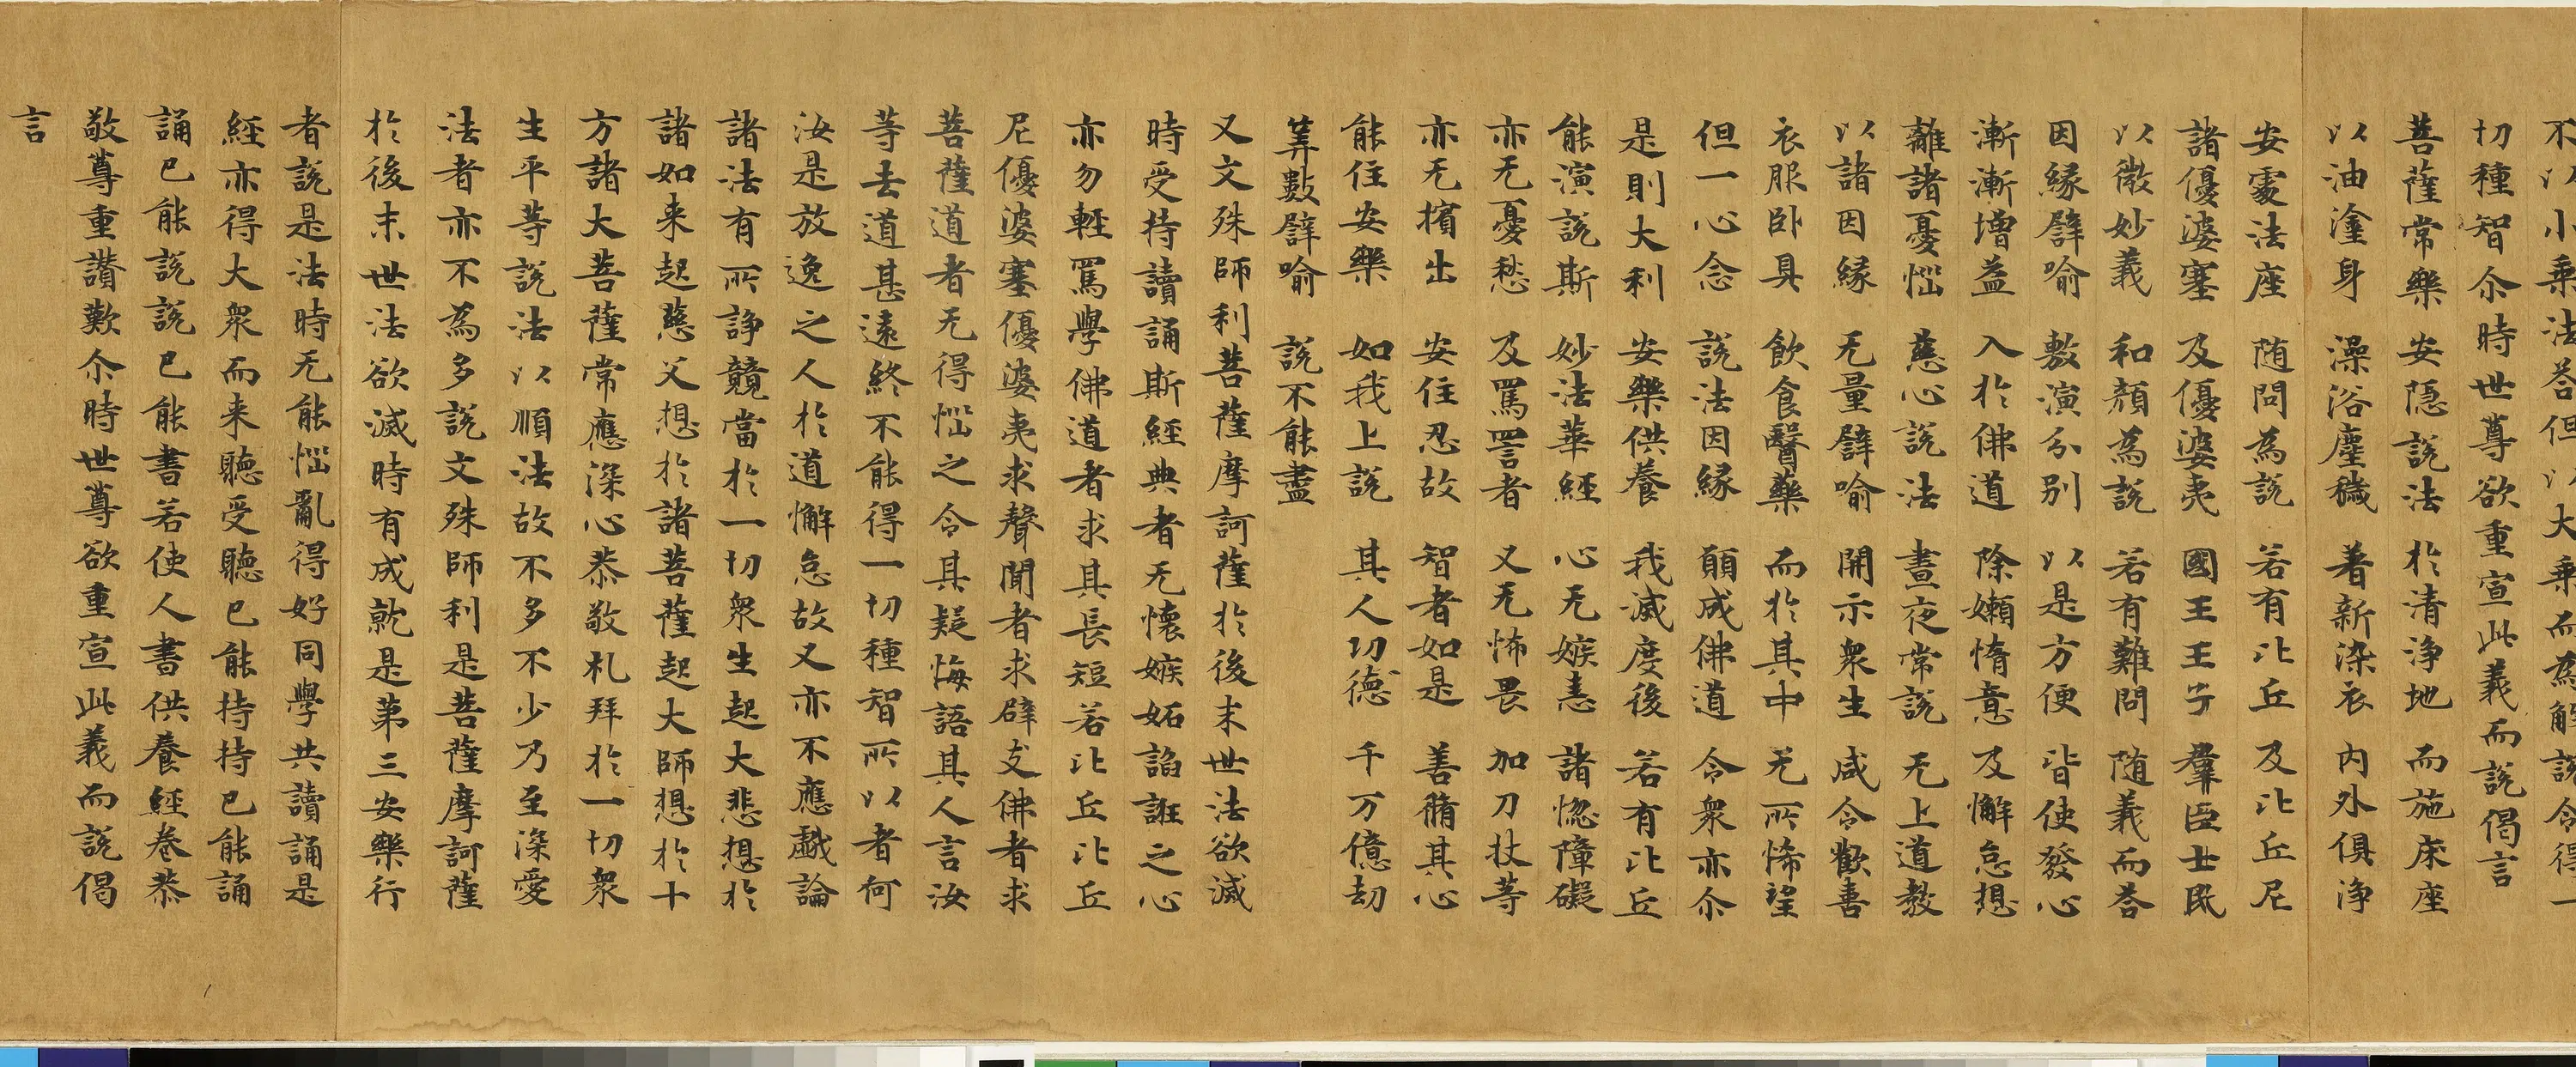 不以小乘法答但以大乘而為解說令得一
切種智尒時世尊欲重宣此義而說偈言
菩薩常樂 安隱說法 於清淨地 而施床座
以油塗身 澡浴塵穢 著新染衣 內外俱淨
安處法座 随問為說 若有比丘 及比丘尼
諸優婆塞 及優婆夷 國王王子 羣臣士民
以微妙義 和顏為說 若有難問 随義而答
因緣譬喻 敷演分別 以是方便 皆使發心
漸漸增益 入於佛道 除嬾惰意 及懈怠想
離諸憂惱 慈心說法 晝夜常說 无上道教
以諸因緣 无量譬喻 開示衆生 咸令歡喜
衣服卧具 飲食醫藥 而於其中 无所悕望
但一心念 說法因緣 願成佛道 令衆亦尒
是則大利 安樂供養 我滅度後 若有比丘
能演說斯 妙法華經 心无嫉恚 諸惱障礙
亦无憂愁 及罵詈者 又无怖畏 加刀杖等
亦无擯出 安住忍故 智者如是 善脩其心
能住安樂 如我上說 其人功德 千万億劫
筭數譬喻 說不能盡
又文殊師利菩薩摩訶薩於後末世法欲滅
時受持讀誦斯經典者无懷嫉妬諂誑之心
亦勿輕罵學佛道者求其長短若比丘比丘
尼優婆塞優婆夷求聲聞者求辟支佛者求
菩薩道者无得惱之令其疑悔語其人言汝
等去道甚遠終不能得一切種智所以者何
汝是放逸之人於道懈怠故又亦不應戲論
諸法有所諍競當於一切衆生起大悲想於
諸如来起慈父想於諸菩薩起大師想於十
方諸大菩薩常應深心恭敬礼拜於一切衆
生平等說法以順法故不多不少乃至深愛
法者亦不為多說文殊師利是菩薩摩訶薩
於後末世法欲滅時有成就是第三安樂行
者說是法時无能惱亂得好同學共讀誦是
經亦得大衆而来聽受聽已能持持已能誦
誦已能說說已能書若使人書供養經卷恭
敬尊重讚歎尒時世尊欲重宣此義而說偈
言